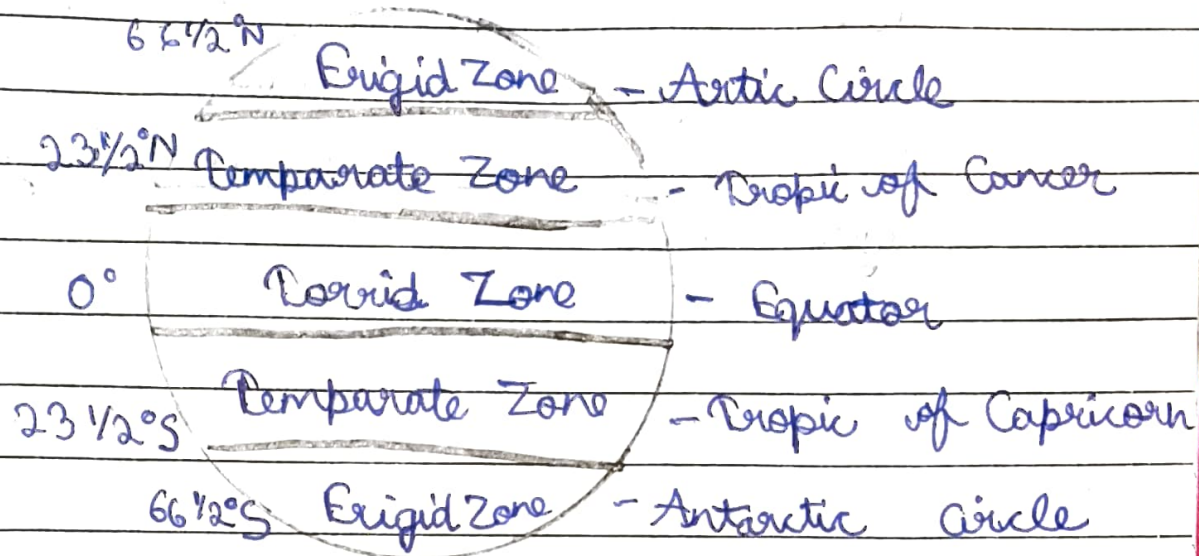 66 1/2°N Frigid Zone - Artic Circle
23 1/2°N Temparate Zone - Tropic of Cancer
0° Torrid Zone - Equator
23 1/2°S Temparate Zone - Tropic of Capricorn
66 1/2°S Frigid Zone - Antarctic circle